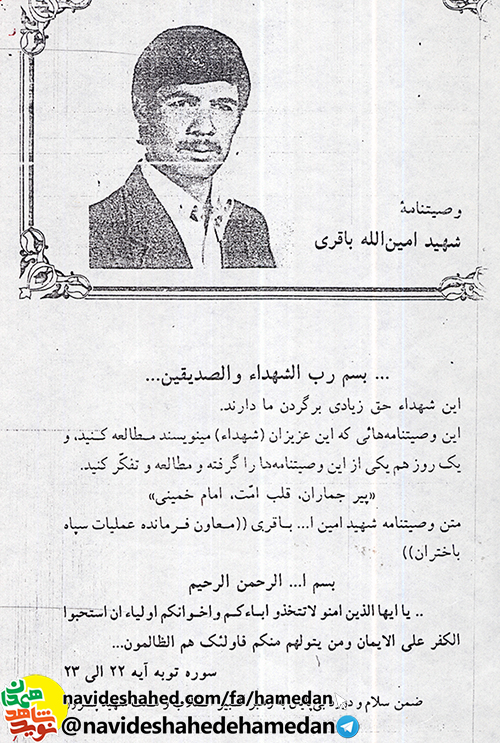 وصیتنامهٔ
شهید امین‌الله باقری
... بسم رب الشهداء والصدیقین...
این شهداء حق زیادی برگردن ما دارند.
این وصیتنامه‌هائی که این عزیزان (شهداء) مینویسند مطالعه کنید، و
یک روز هم یکی از این وصیتنامه‌ها را گرفته و مطالعه و تفکّر کنید.
«پیر جماران، قلب امّت، امام خمینی»
متن وصیتنامه شهید امین ا... باقری ((معاون فرمانده عملیات سپاه
باختران))
بسم ا... الرحمن الرحیم
.. یا ایها الذین امنو لاتتخذو اباءکم واخوانکم اولیاء ان استحبوا
الکفر علی الایمان ومن یتولهم منکم فاولئک هم الظالمون...
سوره توبه آیه ۲۲ الی ۲۳
ضمن سلام و درود
navideshahed.com/fa/hamedan
@navideshahedehamedan
نوید شاهد
همدان